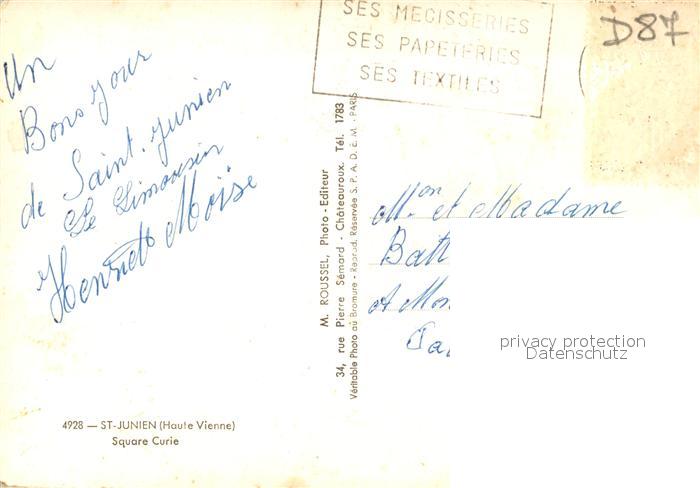 Un
Bons jour
de Saint-Junien
Le Limousin
Henriette Moïse
4928 — ST-JUNIEN (Haute Vienne)
Square Curie
M. ROUSSEL, Photo - Editeur
34, rue Pierre Sémard - Châteauroux. Tél. 1783
Véritable Photo au Bromure - Reprod. Réservée S. P. A. D. E. M. - PARIS
SES MEGISSERIES
SES PAPETERIES
SES TEXTILES
D87
Mon et Madame
Bat
et Mon
privacy protection
Datenschutz